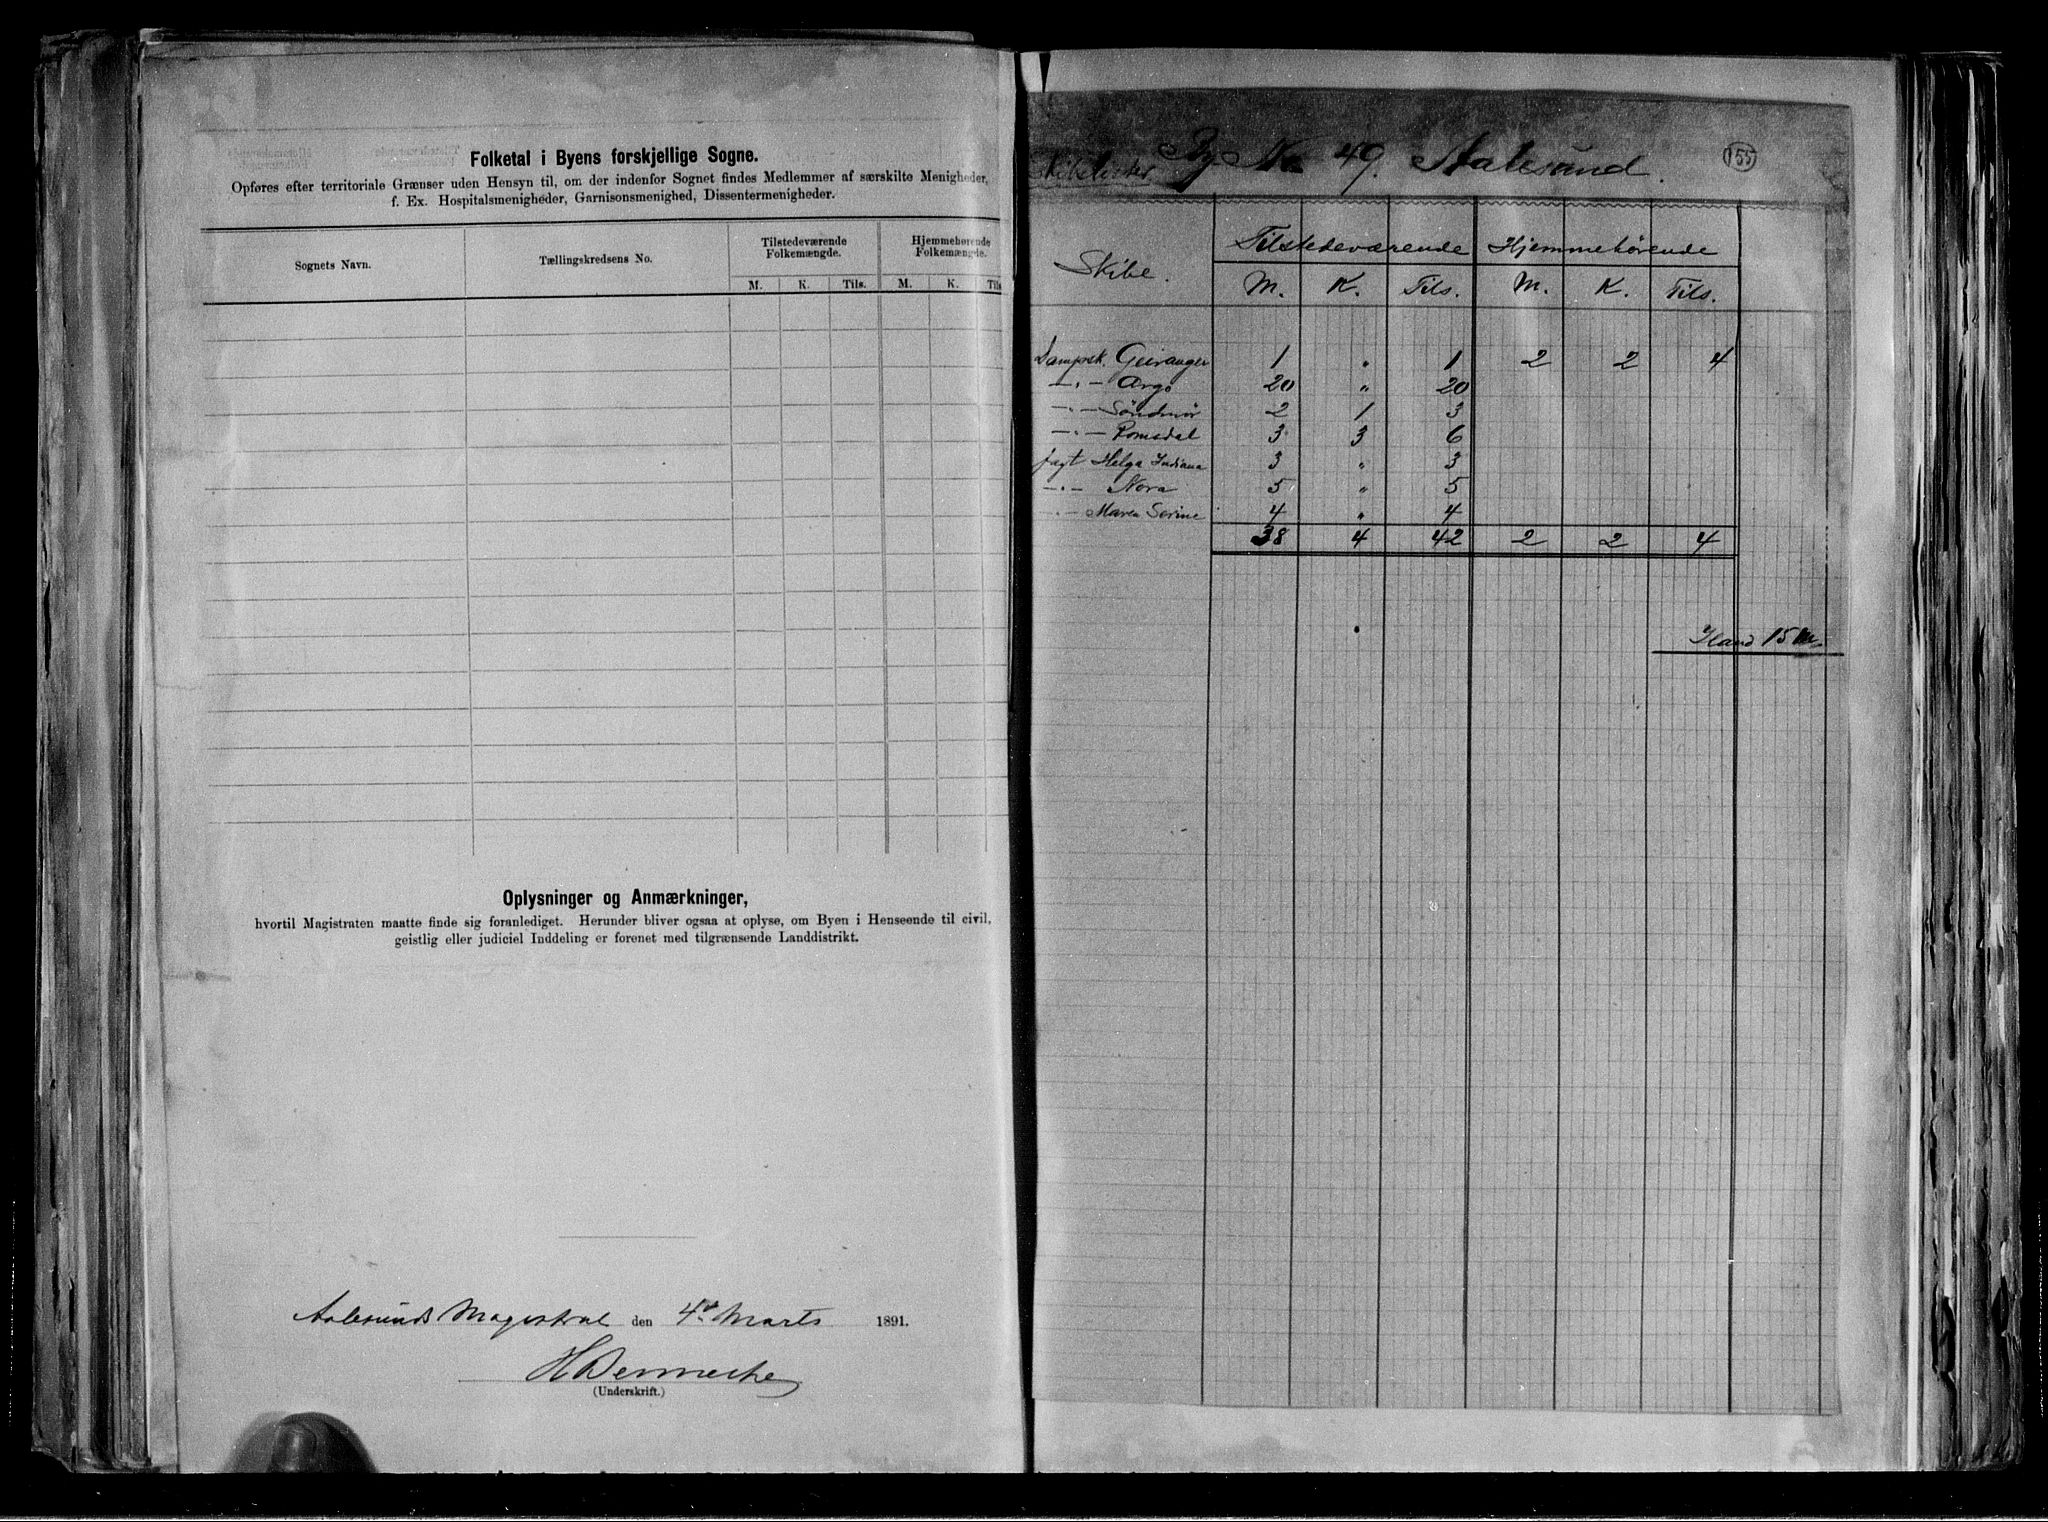 Folketal i Byens forskjellige Sogne.
Opføres efter territoriale Grænser uden Hensyn til, om der indenfor Sognet findes Medlemmer af særskilte Menigheder,
f. Ex. Hospitalsmenigheder, Garnisonsmenighed, Dissentermenigheder.
Sognets Navn. Tællingskredsens No. Tilstedeværende Folkemængde. Hjemmehørende Folkemængde.
M. K. Tils. M. K. Tils
Oplysninger og Anmærkninger,
hvortil Magistraten maatte finde sig foranlediget. Herunder bliver ogsaa at oplyse, om Byen i Henseende til civil,
geistlig eller judiciel Inddeling er forenet med tilgrænsende Landdistrikt.
Aalesunds Magistrat den 4de Marts 1891.
(Underskrift.)
Skibslister By No 49. Aalesund. 155
Skibe. Tilstedeværende Hjemmehørende
M. K. Tils. M. K. Tils.
Dampsk. Geiranger 1 " 1 2 2 4
—"— Argo 20 " 20
—"— Söndmör 2 1 3
—"— Romsdal 3 3 6
Jagt Helga Indiana 3 " 3
—"— Nora 5 " 5
—"— Maren Serine 4 " 4
38 4 42 2 2 4
Iland 15 M.